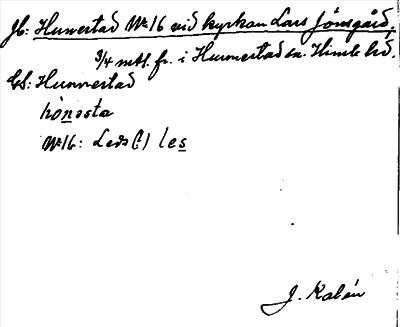 Jb: Hunnestad № 16 vid kyrkan Lars Jönsgård,
3/4 mtl. fr. i Hunnestad sn. Himle hd.
GS: Hunnestad
hònesta
№ 16: Leds (?) les
J. Kalén